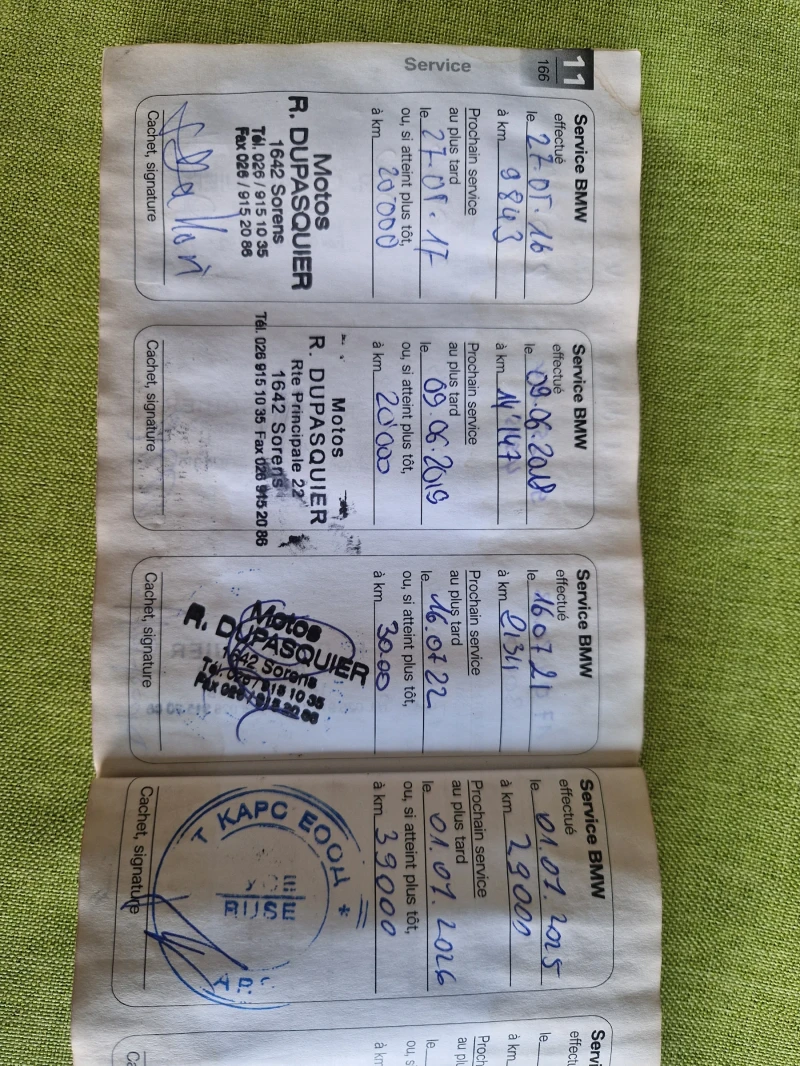 11
166
Service
Service BMW
effectué
le 27.05.16
à km 9843
Prochain service
au plus tard
le 27.05.17
ou, si atteint plus tôt,
à km 20'000
Motos
R. DUPASQUIER
1642 Sorens
Tél. 026 / 915 10 35
Fax 026 / 915 20 86
Cachet, signature
Service BMW
effectué
le 09.06.2018
à km 14'147
Prochain service
au plus tard
le 09.06.2019
ou, si atteint plus tôt,
à km 20'000
Motos
R. DUPASQUIER
Rte Principale 22
1642 Sorens
Tél. 026 915 10 35 Fax 026 915 20 86
Cachet, signature
Service BMW
effectué
le 16.07.21
à km
Prochain service
au plus tard
le 16.07.22
ou, si atteint plus tôt,
à km 30.00
Motos
R. DUPASQUIER
1642 Sorens
Tél. 026 / 915 10 35
Fax 026 / 915 20 86
Cachet, signature
Service BMW
effectué
le 01.07.2025
à km 29000
Prochain service
au plus tard
le 01.07.2026
ou, si atteint plus tôt,
à km 39000
Cachet, signature
Servi
effectu
le
à km
Proch
au pl
le
ou, s
à km